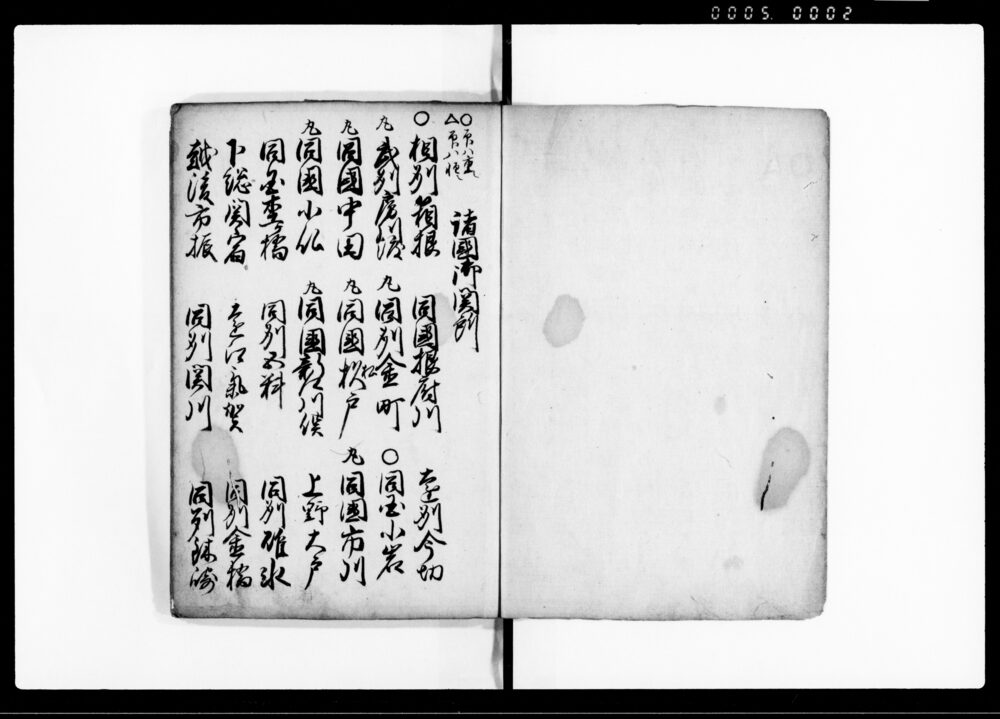 0005. 0002
諸國御関所
○相刕箱根 同國根府川 遠刕今切
九 武刕房川渡 九 同刕金町 ○同国小岩
九 同國中田 九 同國松戸 九 同國市川
九 同國小仏 九 同國新川俣 上野大戸
同国杢橋 同刕五料 同刕碓氷
下総関宿 遠江氣賀 同刕金橋
越後市振 同刕関川 同刕鉢崎